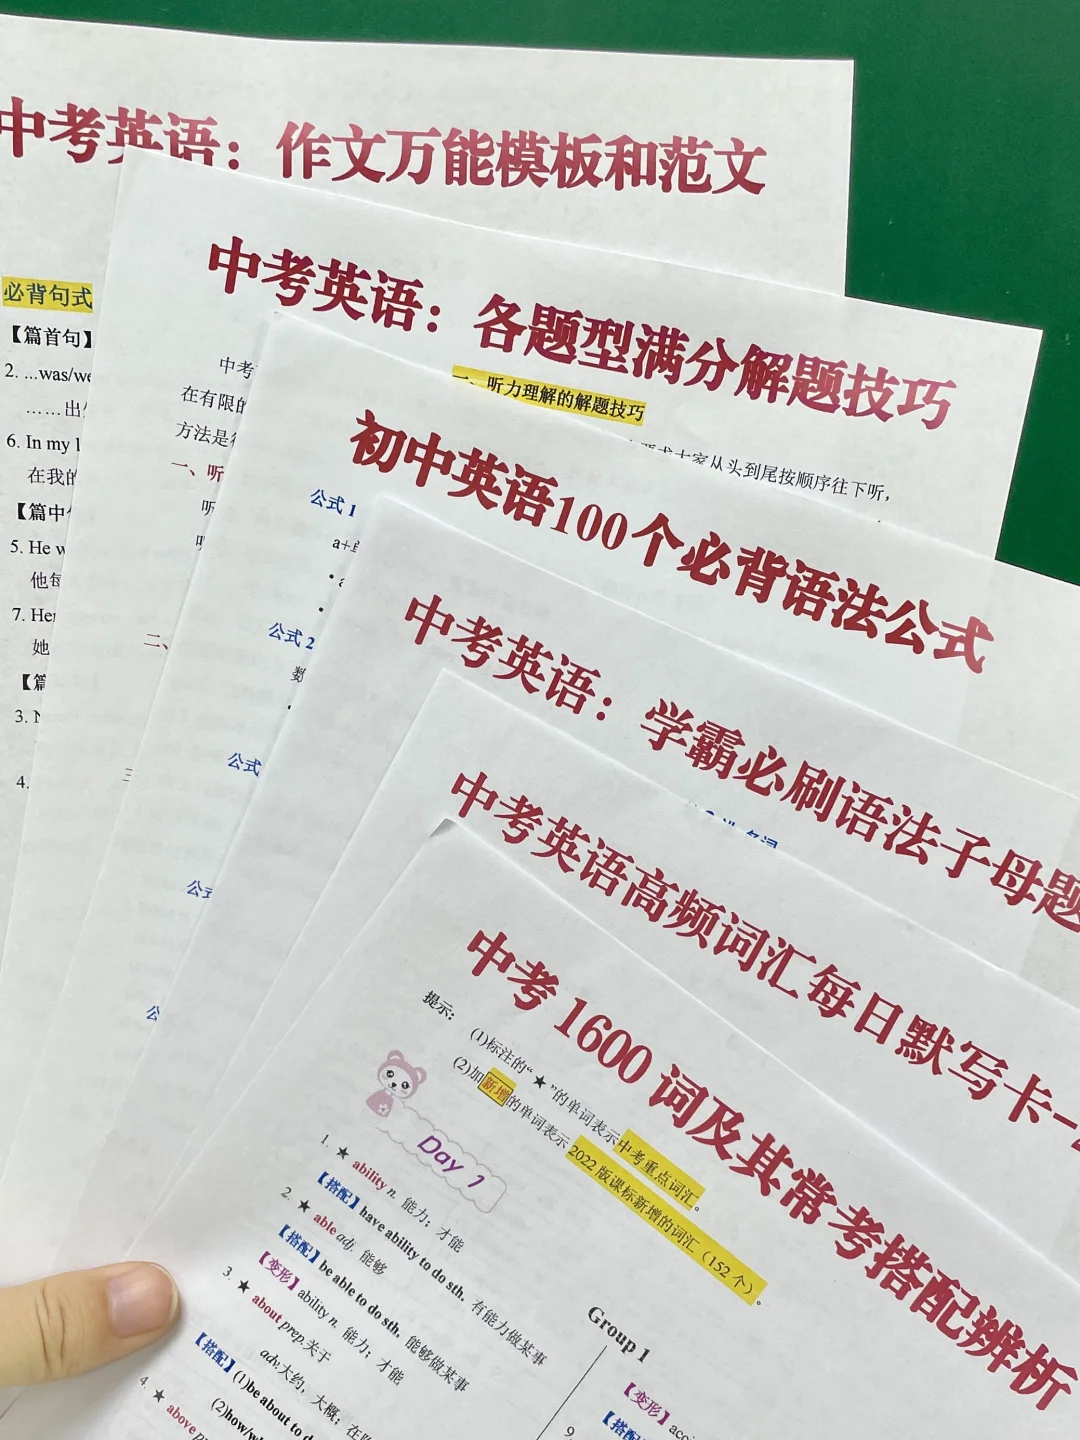 中考英语：作文万能模板和范文
必背句式
【篇首句】
2. ...was/we
……出
6. In my
在我的
【篇中
5. He w
他每
7. Her
她
【篇
3. N
4.
中考英语：各题型满分解题技巧
一、听力理解的解题技巧
中考
在有限的
方法是
大家从头到尾按顺序往下听，
一、听
听
二、
三
初中英语100个必背语法公式
公式 1
a+
• a
•
公式 2
数
•
公式
公式
公
中考英语：学霸必刷语法子母题
中考英语高频词汇每日默写卡-
中考 1600 词及其常考搭配辨析
提示：
(1)标注的“★”的单词表示中考重点词汇。
(2)加新增的单词表示 2022 版课标新增的词汇（152 个）。
Day 1
1. ★ ability n. 能力；才能
【搭配】have ability to do sth. 有能力做某事
2. ★ able adj. 能够
【搭配】be able to do sth. 能够做某事
【变形】ability n. 能力；才能
3. ★ about prep.关于
adv.大约，大概；在
【搭配】(1)be about to d
(2)how/w
4. ★ above p
Group 1
【变形】acc
【搭配】
9.